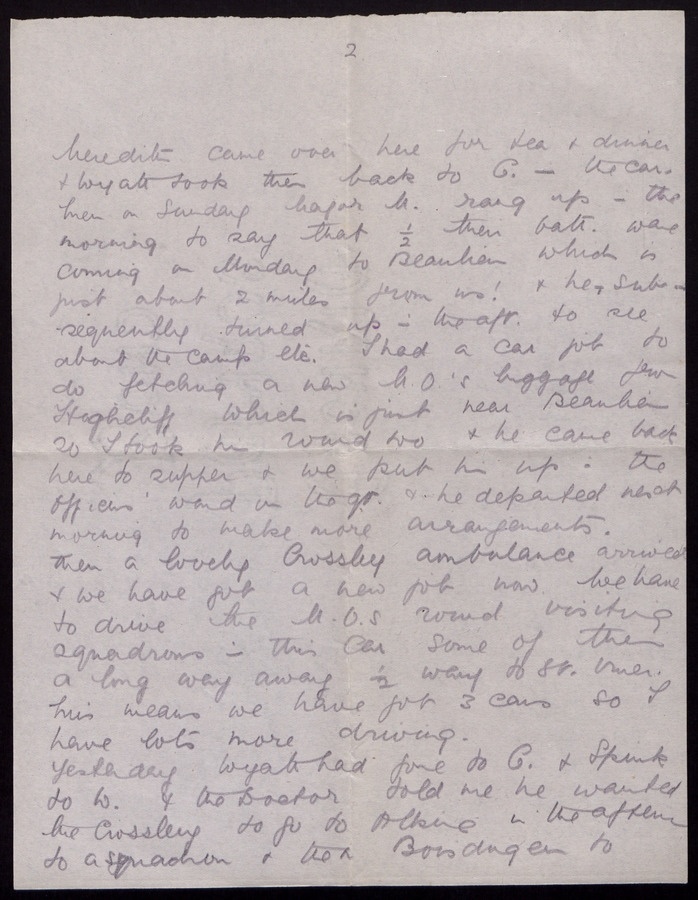 2
Meredith came over here for tea & dinner
& Wyatt took them back to C. – the car.
then on Sunday Major M. rang up – the
morning to say that ½ their batt. were
coming on Monday to Beaulieu which is
just about 2 miles from us! & he, subse-
sequently turned up in the aft. to see
about the camp etc. I had a car job to
do fetching a new M.O.'s luggage from
which is just near Beaulieu
so I took him round too & he came back
here to supper & we put him up in the
officers' ward in the & he departed next
morning to make more arrangements.
then a lovely Crossley ambulance arrived
& we have got a new job now. We have
to drive the M.O.s round visiting
squadrons in this car some of them
a long way away ½ way to St. Omer.
this means we have got 3 cars so I
have lots more driving.
Yesterday Wyatt had gone to C. & Spink
to W. & the Doctor told me he wanted
the Crossley to go to in the aftern
to a squadron & then Boisdinghem to